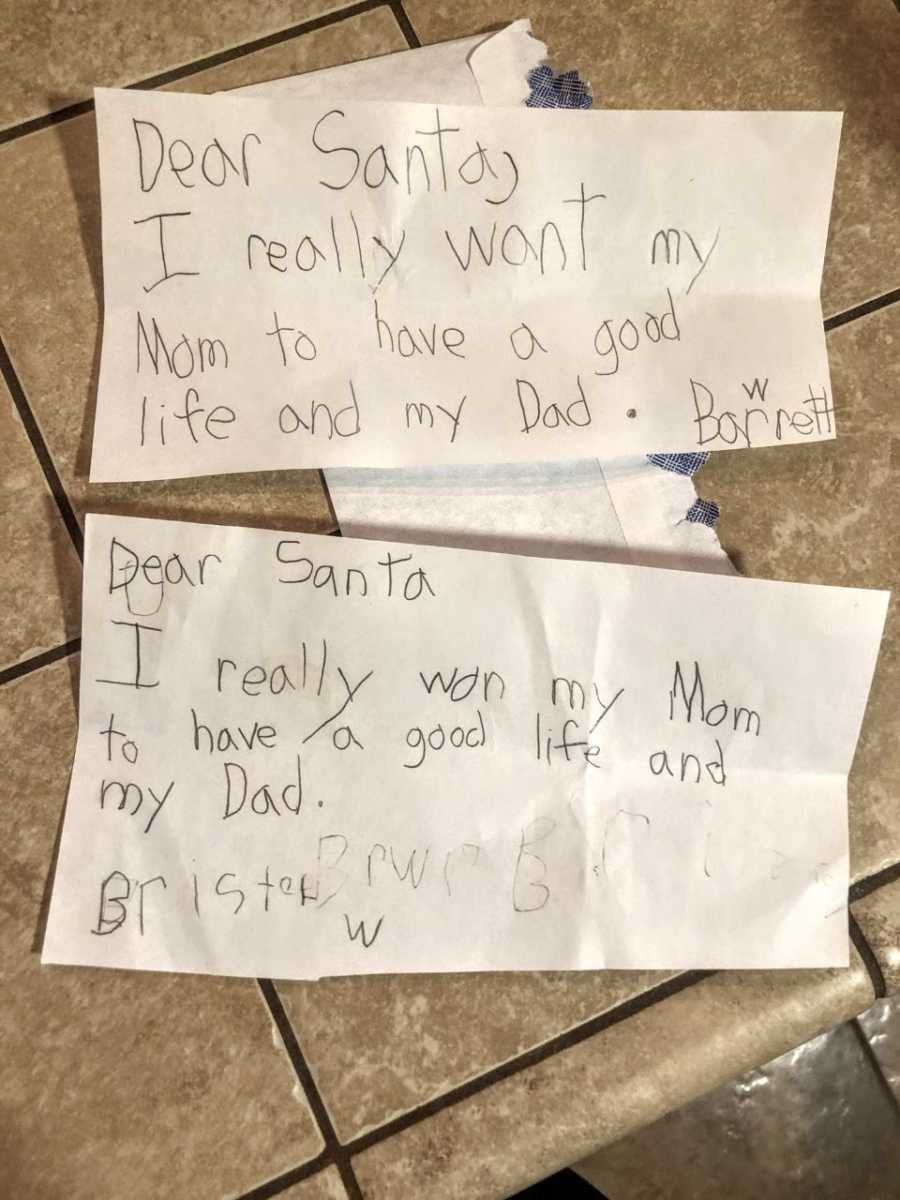 Dear Santa,
I really want my
Mom to have a good
W
life and my Dad. Barrett
Dear Santa
I really won my Mom
to have a good life and
my Dad.
Bristen
W